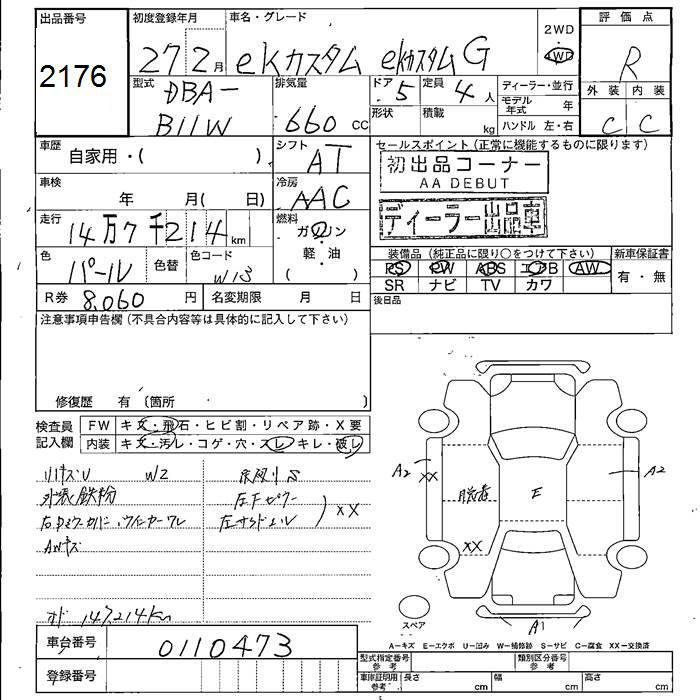 出品番号
2176
初度登録年月
27 2月
車名・グレード
eKカスタム eKカスタムG
2WD
4WD
評価点
R
外装 内装
C C
型式
DBA-
B11W
排気量
660 cc
ドア 5
形状
定員 4人
積載 kg
ディーラー・並行
モデル年式 年
ハンドル 左・右
車歴
自家用・( )
シフト
AT
車検
年 月( 日)
冷房
AAC
走行
14万7千214km
燃料
ガソリン
軽・油
( )
色
パール
色替
色コード
W13
R券 8,060 円
名変期限 月 日
セールスポイント(正常に機能するものに限ります)
初出品コーナー
AA DEBUT
ディーラー出品車
装備品(純正品に限り○をつけて下さい)
PS PW ABS エアB AW
SR ナビ TV カワ
新車保証書
有・無
後日品
注意事項申告欄(不具合内容等は具体的に記入して下さい)
修復歴 有〔箇所 〕
検査員記入欄
FW キズ・飛石・ヒビ割・リペア跡・X要
内装 キズ・汚レ・コゲ・穴・スレ・キレ・破レ
W2
外装鉄粉
AWキズ
XX
オド 147,214km
A2
XX
A2
E
XX
A1
スペア
A―キズ E―エクボ U―凹み W―補修跡 S―サビ C―腐食 XX―交換済
車台番号
0110473
登録番号
型式指定番号 参考
類別区分番号 参考
車庫証明用 参考
長さ cm
幅 cm
高さ cm